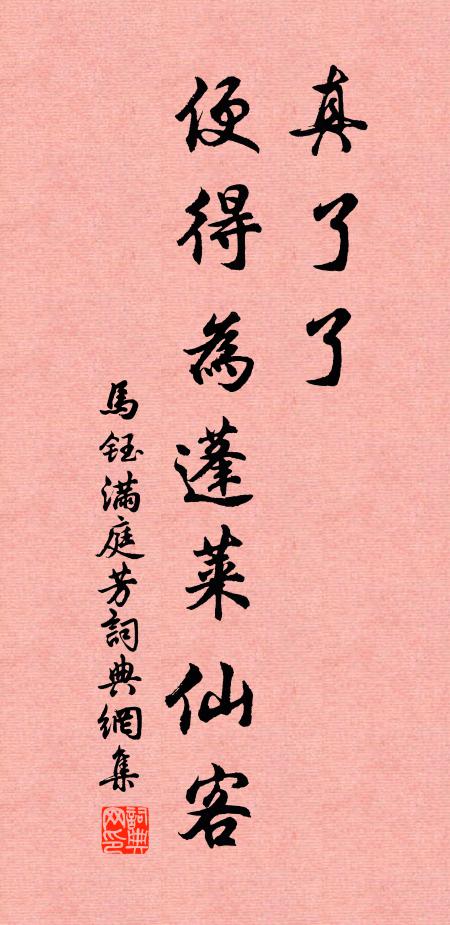 真了了
便得為蓬莱仙客
馬鈺滿庭芳詞典網集
詞典网印